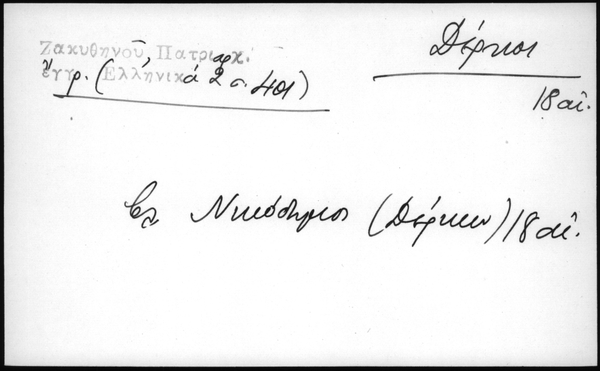 Ζακυθηνοῦ, Πατριαρχ.
ἔγγρ. (Ἑλληνικά 2 σ. 401)
Δέρκοι
18 αἰ.
Νικόδημος (Δέρκων) 18 αἰ.